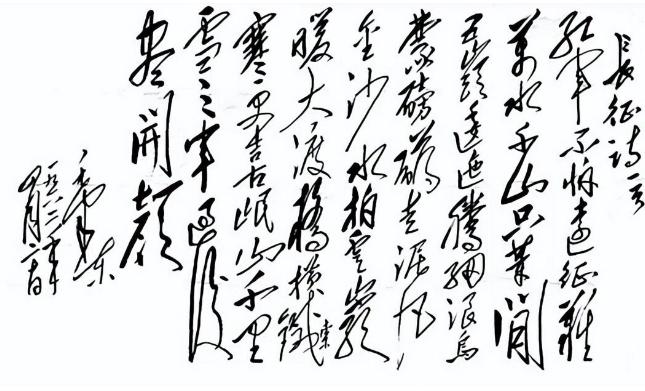 長征詩一首
紅軍不怕遠征難
萬水千山只等閒
五嶺逶迤騰細浪烏
蒙磅礴走泥丸
金沙水拍雲崖
暖大渡橋橫鐵索
寒更喜岷山千里
雪三軍過後
盡開顏
毛澤東
一九六二年
四月二十日